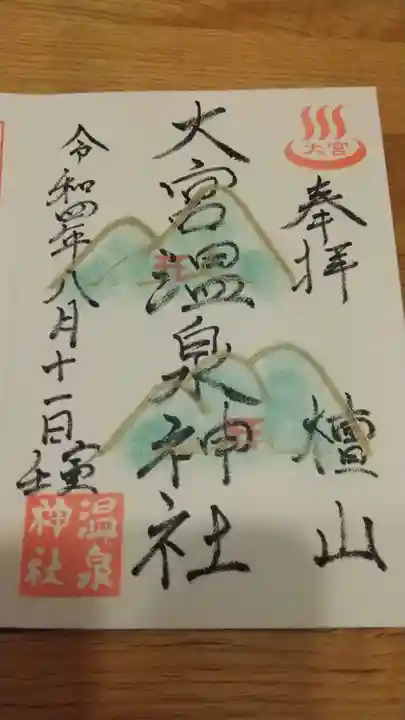 大宮
奉拝
山
大宮温泉神社
令和四年八月十一日
壬寅
温泉
神社